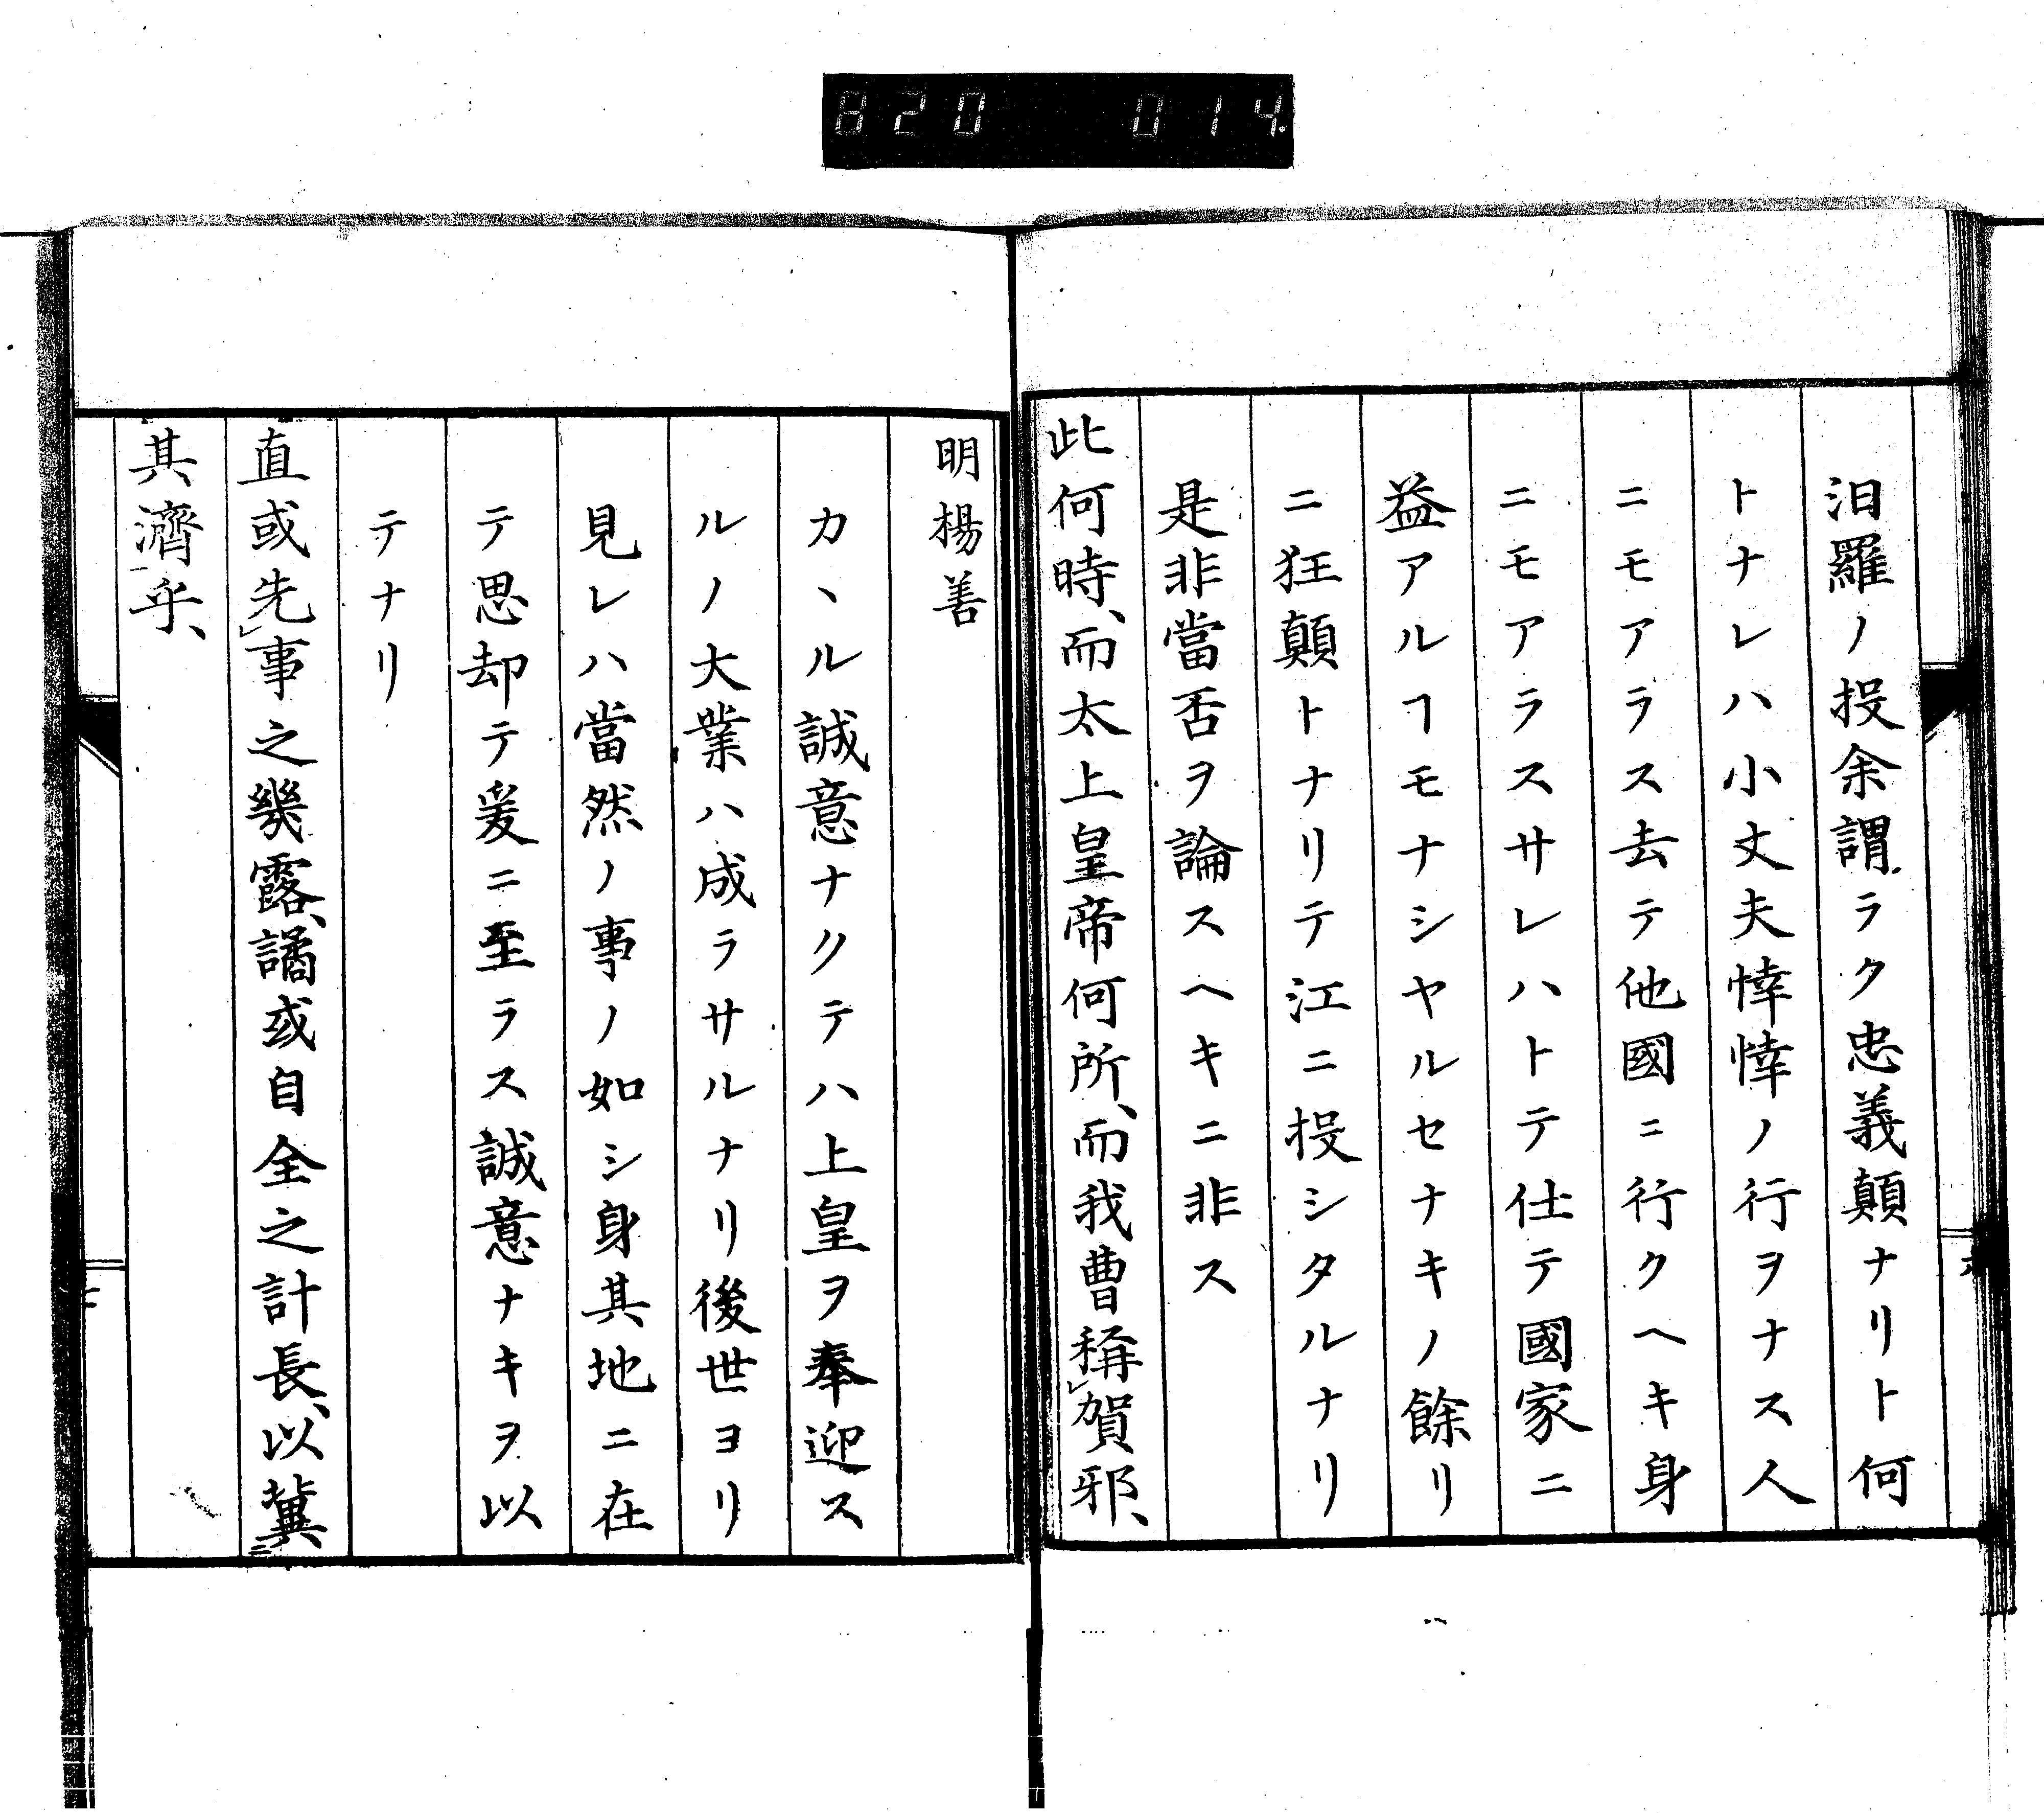 820 014
汨羅ノ投余謂ラク忠義顛ナリト何
トナレハ小丈夫悻悻ノ行ヲナス人
ニモアラス去テ他國ニ行クヘキ身
ニモアラスサレハトテ仕テ國家ニ
益アルヿモナシヤルセナキノ餘リ
ニ狂顛トナリテ江ニ投シタルナリ
是非當否ヲ論スヘキニ非ス
此何時、而太上皇帝何所、而我曹稱賀邪、
明楊善
カヽル誠意ナクテハ上皇ヲ奉迎ス
ルノ大業ハ成ラサルナリ後世ヨリ
見レハ當然ノ事ノ如シ身其地ニ在
テ思却テ爰ニ至ラス誠意ナキヲ以
テナリ
直或先事之幾露、譎或自全之計長、以冀
其濟乎、